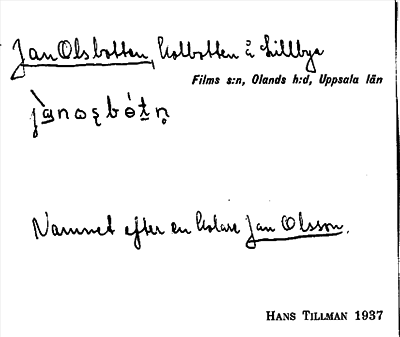 Jan Olsbotten, kolbotten å Lillbyn
Films s:n, Olands h:d, Uppsala län
Namnet efter en kolare Jan Olsson.
HANS TILLMAN 1937